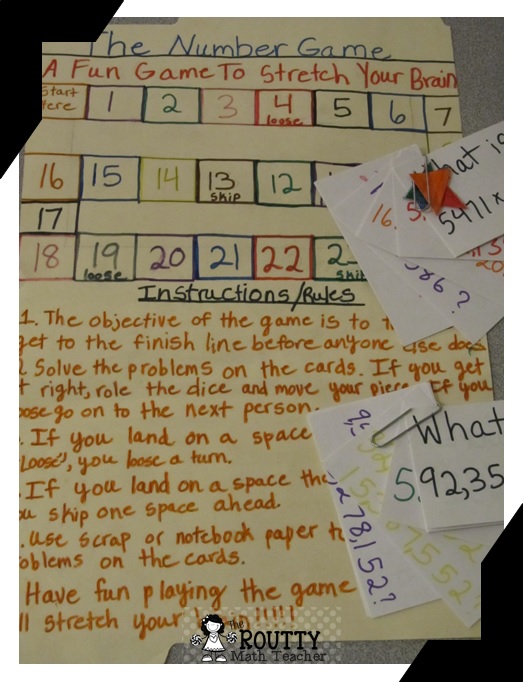 The Number Game
A Fun Game To Stretch Your Brain
Start Here 1 2 3 4 loose 5 6 7
16 15 14 13 skip 12
17
18 19 loose 20 21 22 skip
Instructions/Rules
1. The objective of the game is to
get to the finish line before anyone else does
Solve the problems on the cards. If you get
right, role the dice and move your piece. If you
go on to the next person.
If you land on a space
Loose", you loose a turn.
If you land on a space
skip one space ahead.
use scrap or notebook paper
on the cards.
Have fun playing the game
stretch your
What is
5471 x
16. 5.
What
5. 92,35
78,152?
The
ROUTTY
Math Teacher